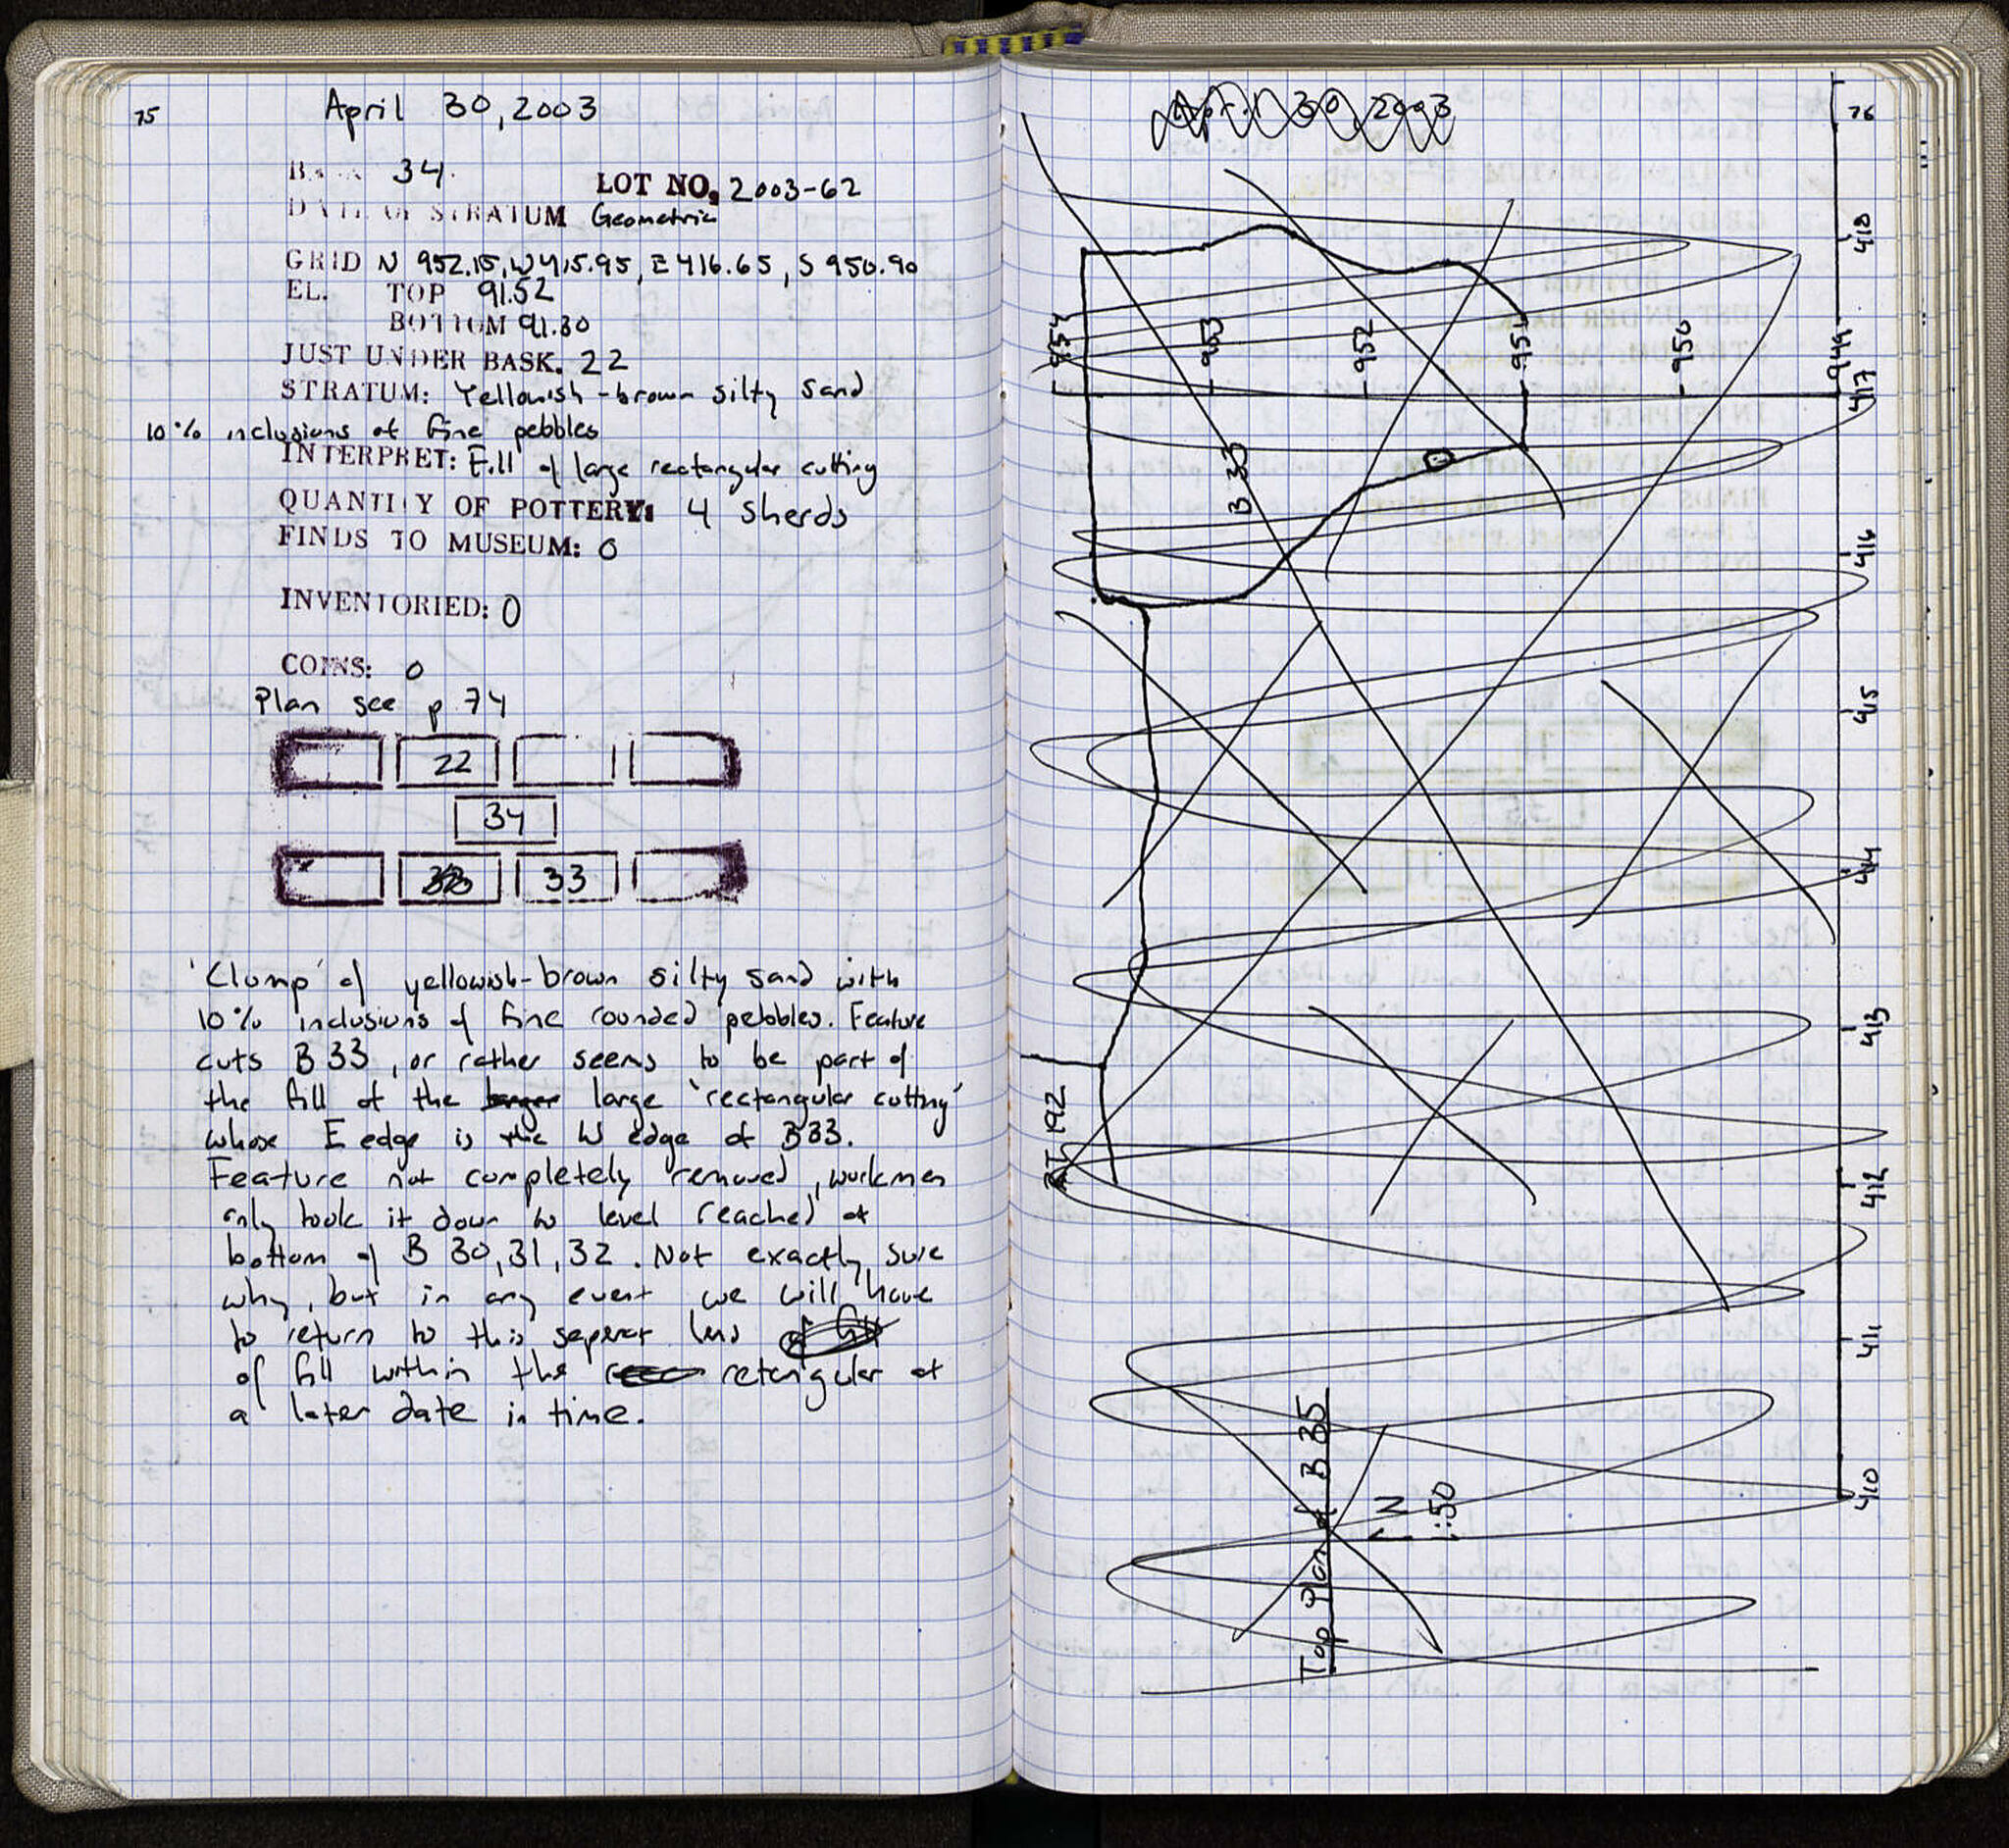 75
April 30, 2003
34.
LOT NO. 2003-62
DATE OF STRATUM Geometric
GRID N 952.15, W 415.95, E 416.65, S 950.90
EL. TOP 91.52
BOTTOM 91.30
JUST UNDER BASK. 22
STRATUM: Yellowish-brown silty sand
10% inclusions of fine pebbles
INTERPRET: Fill of large rectangular cutting
QUANTITY OF POTTERY: 4 sherds
FINDS TO MUSEUM: 0
INVENTORIED: 0
COINS: 0
Plan see p 74
22
34
33
'Clump' of yellowish-brown silty sand with
10% inclusions of fine rounded pebbles. Feature
cuts B 33, or rather seems to be part of
the fill of the large 'rectangular cutting'
whose E edge is the W edge of B33.
Feature not completely removed, workmen
only took it down to level reached at
bottom of B 30, 31, 32. Not exactly sure
why, but in any event we will have
to return to this seperat lens
of fill within the retangular at
a later date in time.
April 30, 2003
76
418
954
953
952
951
950
949
417
B 33
416
415
414
413
RT 192
412
411
410
Top Plan of B 35
N
1:50